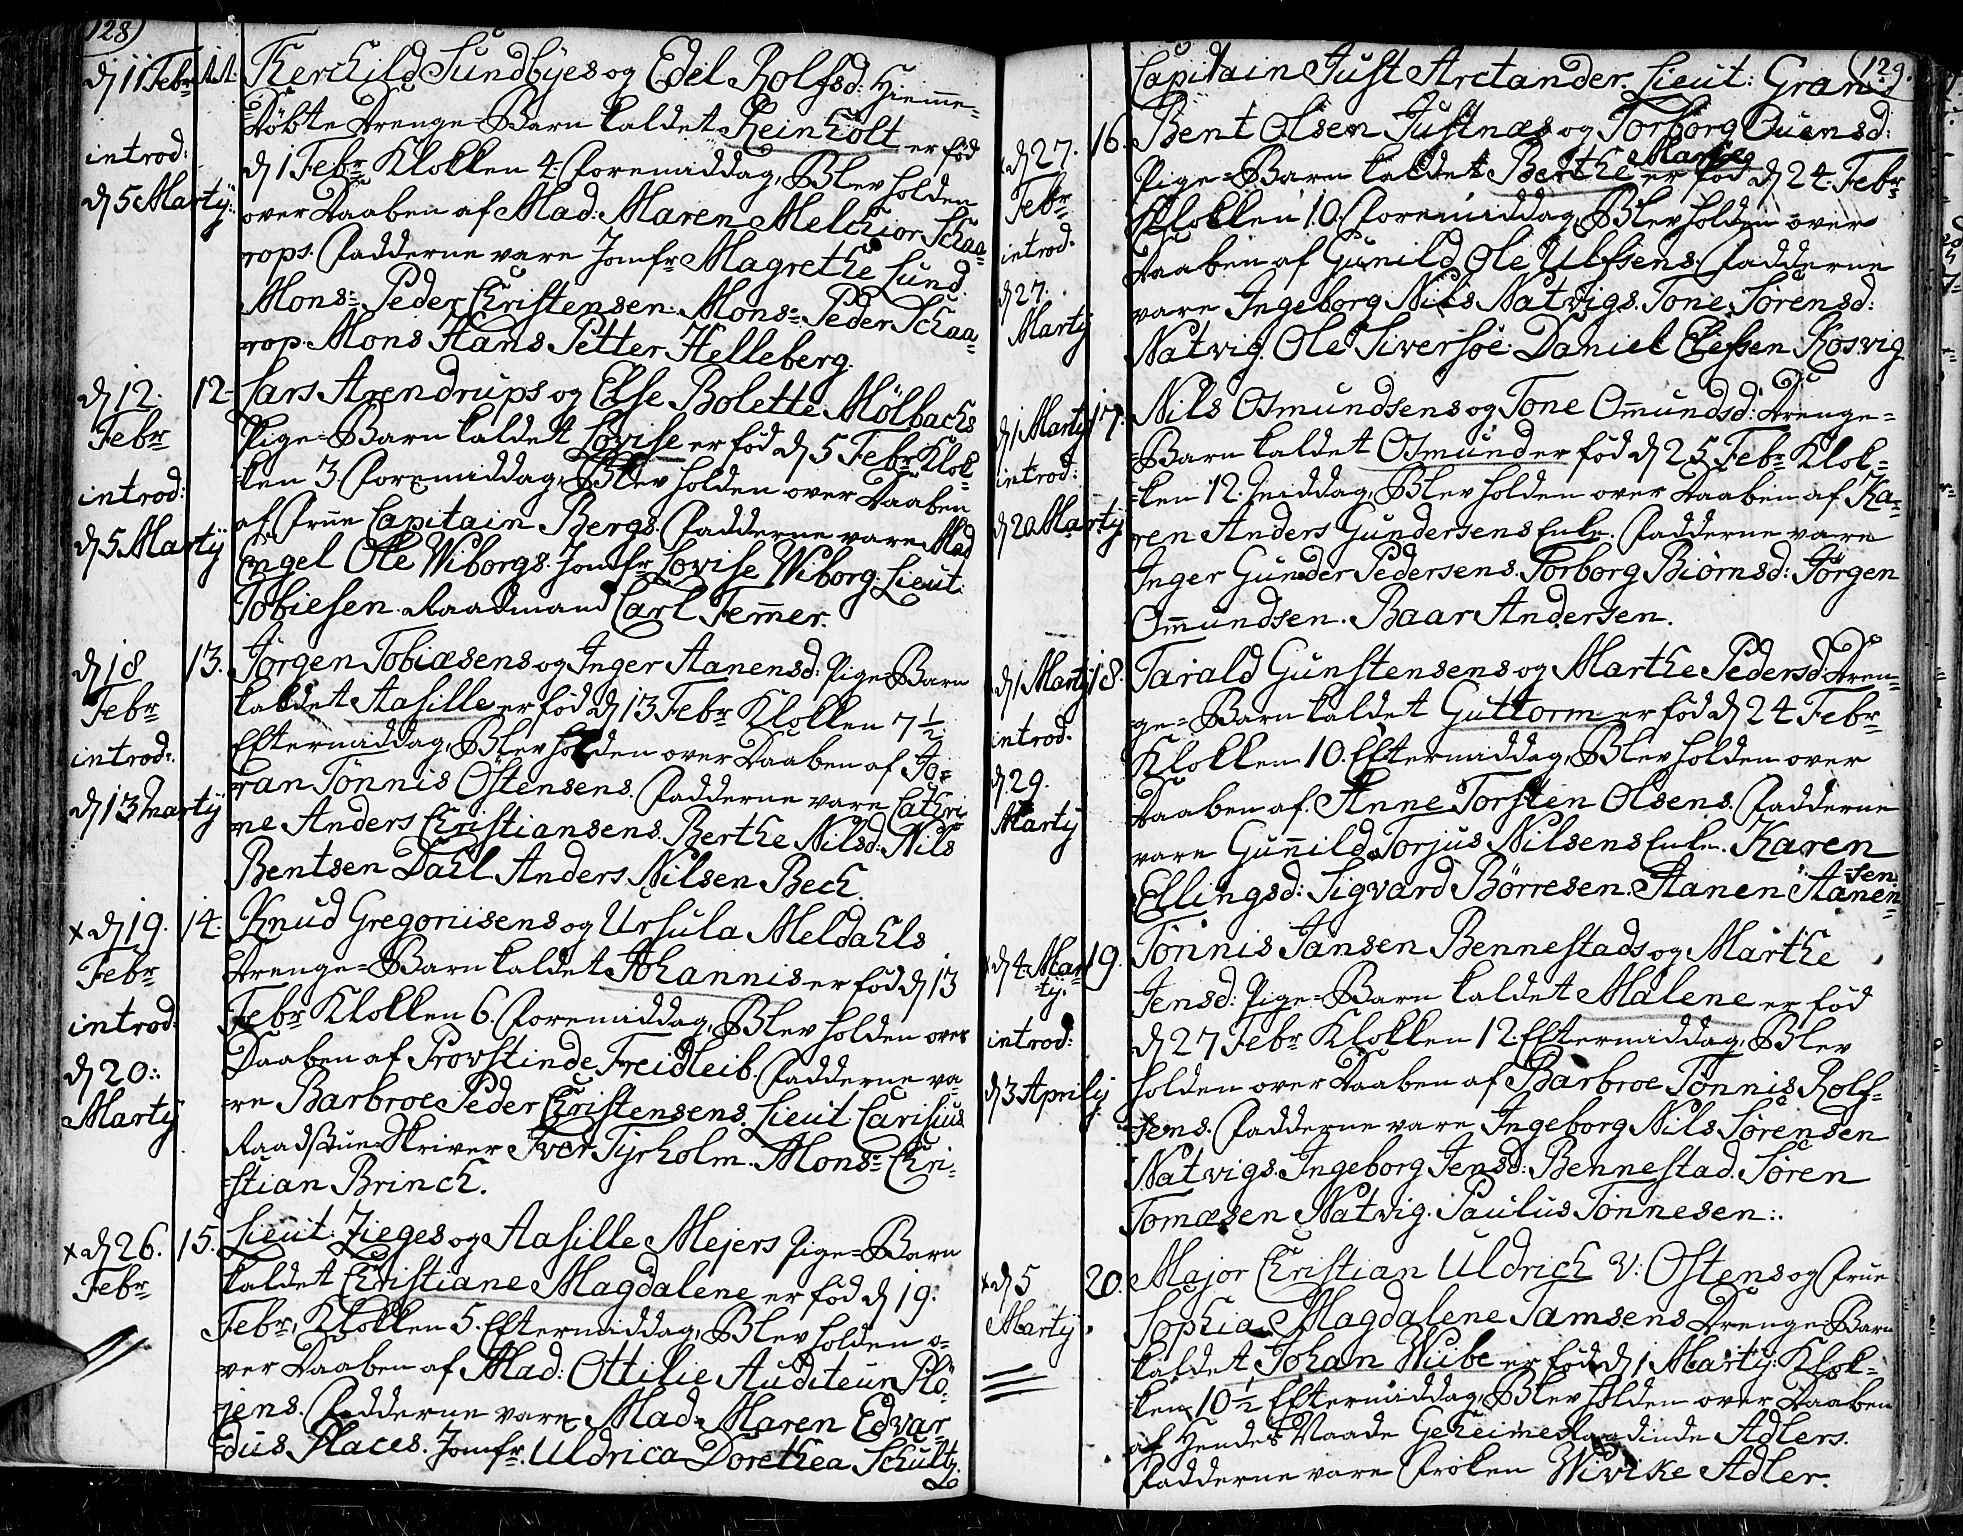 128)
d 11 Febr 11. Kerchild Sundbyes og Edel Rolfsd: Hieme-
Döbte Drenge-Barn kaldet Reinholt er fød
introd: d 1 Febr Klokken 4. Foremiddag, Blev holden
d 5 Martÿ: over Daaben af Mad: Maren Melchior Schaa-
rops. Fadderne vare Jomfr Magrethe Lund.
Mons: Peder Christensen. Mons: Peder Schaa-
rop. Mons Hans Petter Helleberg.
d 12. 12. Lars Arendrups og Else Bolette Mölbachs
Febr Pige-Barn kaldet Lovise er fød d 5 Febr Klok-
introd: ken 3. Foremiddag, Blev holden over Daaben
d 5 Martÿ af Frue Capitain Bergs. Fadderne vare Mad
Engel Ole Wiborgs. Jomfr Lovise Wiborg. Lieut:
Tobiesen. Raadmand Carl Femer.
d 18 13. Jørgen Tobiæsens og Inger Aanensd: Pige-Barn
Febr kaldet Aasille er fød d 13 Febr Klokken 7½
introd: Eftermiddag, Blev holden over Daaben af Jo-
d 13 Martÿ ran Tönnis Östensens. Fadderne vare Cathri-
ne Anders Christiansens. Berthe Nilsd: Nils
Bentsen Dahl. Anders Nilsen Bech.
x d 19. 14. Knud Gregoriisens og Ursula Meldahls
Febr Drenge-Barn kaldet Johannis er fød d 13
introd: Febr Klokken 6. Foremiddag, Blev holden over
d 20: Daaben af Provstinde Freidleib. Fadderne va-
Martÿ re Barbroe Peder Christensens. Lieut: Carisius
Raadstue-Skriver Iver Tyrholm. Mons: Chri-
stian Brinch.
x d 26. 15. Lieut: Zieges og Aasille Mejers Pige-Barn
Febr kaldet Christiane Magdalene er fød d 19.
Febr, Klokken 5. Eftermiddag, Blev holden o-
ver Daaben af Mad: Ottilie Auditeur Plö-
jens. Fadderne vare Mad: Maren Edvar-
dus Places. Jomfr. Uldrica Dorethea Schultz
129.
Capitain Just Arctander. Lieut: Gran
x d 27. 16. Bent Olsen Justnæs og Torborg Ouensd:
Febr Pige-Barn kaldet Berthe Marie er fød d 24. Febr
introd. Klokken 10. Foremiddag, Blev holden over
d 27. Daaben af Gunild Ole Ulfsens. Fadderne
Martÿ vare Ingeborg Nils Natvigs. Tone Sørensd:
Natvig. Ole Siversøe. Daniel Elefsen Kosvig.
d 1 Martÿ 17. Nils Osmundsens og Tone Omundsd: Drenge-
introd: Barn kaldet Osmund er fød d 25 Febr Klok-
ken 12. Middag, Blev holden over Daaben af Ka-
d 20 Martÿ ren Anders Gundersens Enke. Fadderne vare
Inger Gunder Pedersens. Torborg Biörnsd: Jørgen
Omundsen. Baar Andersen.
d 1 Martÿ 18. Tarald Gunstensens og Marthe Pedersd: Dren-
introd. ge-Barn kaldet Guttorm er fød d 24 Febr
Klokken 10. Eftermiddag, Blev holden over
d 29. Daaben af Anne Torsten Olsens. Fadderne
Martÿ vare Gunild Torjus Nilsens Enke. Karen
Ellingsd: Sigvard Börresen. Aanen Aanen-
sen
x d 4. Mar- 19. Tönnis Jansen Bennestads og Marthe
tÿ. Jensd: Pige-Barn kaldet Malene er fød
introd: d 27 Febr Klokken 12. Eftermiddag, Blev
d 3 Aprilÿ holden over Daaben af Barbroe Tönnis Rolf-
sens. Fadderne vare Ingeborg Nils Sørensen
Natvigs. Ingeborg Jensd: Bennestad. Søren
Tomæsen Natvig. Paulus Tönnesen:.
x d 5 20. Major Christian Uldrich V: Ostens og Frue
Martÿ. Sophia Magdalene Samsens Drenge-Barn
kaldet Johan Wibe er fød d 1 Martÿ. Klok-
ken 10½ Eftermiddag, Blev holden over Daaben
af Hendes Naade Geheime Raadinde Adlers.
Fadderne vare Frøken Wivike Adler.